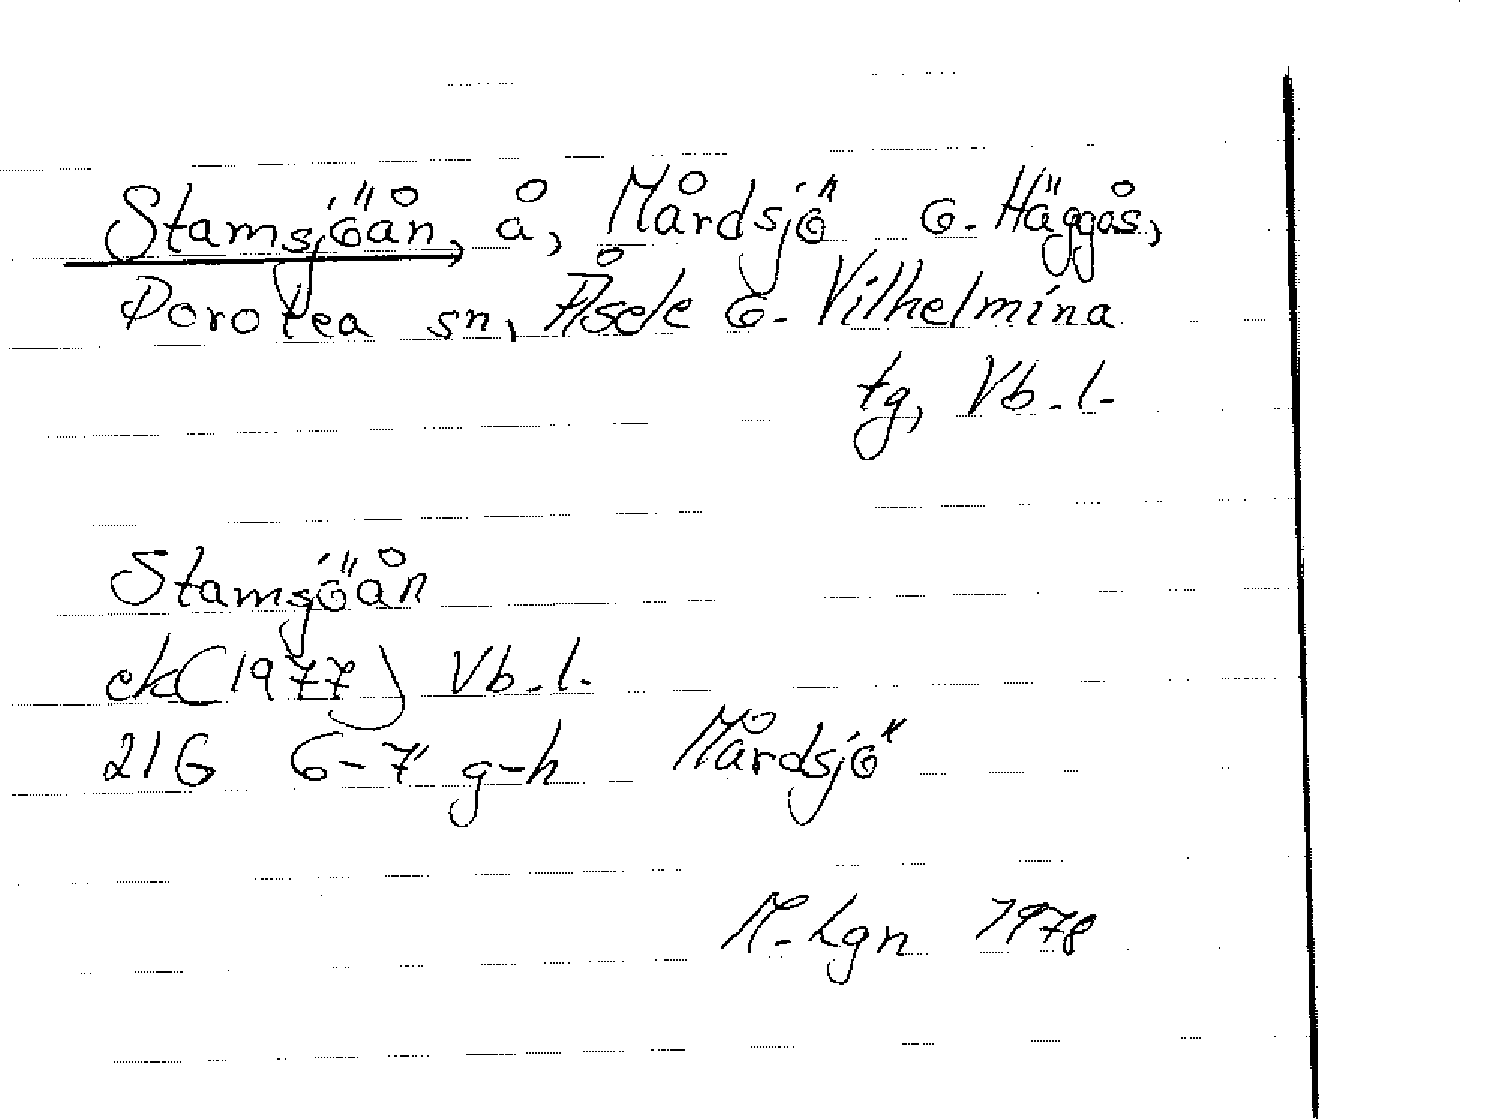 Stamsjöån, å, Mårdsjö o. Häggås,
Dorotea sn, Åsele o. Vilhelmina
tg, Vb.l.
Stamsjöån
ek(1977) Vb.l.
21G 6-7 g-h Mårdsjö
M.Lgn 1978